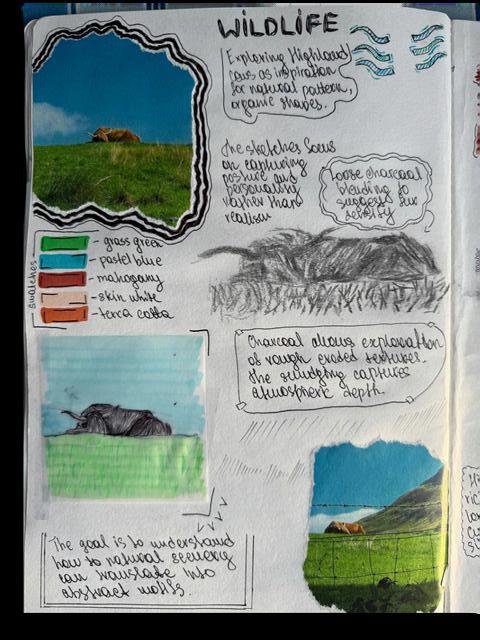 WILDLIFE
Exploring Highland
cows as inspiration
for natural pattern,
organic shapes.
The sketches focus
on capturing
posture and
personality
rather than
realism
Loose charcoal
blending to
suggest fur
density
swatches
grass green
pastel blue
mahogany
skin white
terra cotta
Charcoal allows exploration
of rough eroded textures.
The smudging captures
atmospheric depth.
The goal is to understand
how to natural scenery
can translate into
abstract motifs.